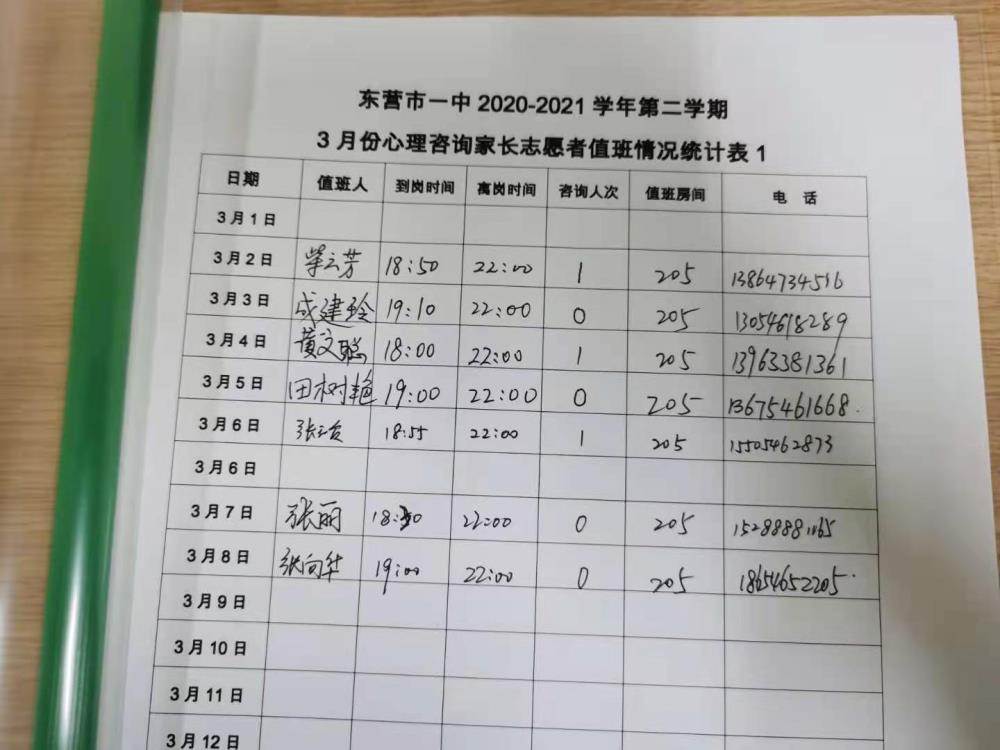 东营市一中 2020-2021 学年第二学期
3 月份心理咨询家长志愿者值班情况统计表 1
日期 值班人 到岗时间 离岗时间 咨询人次 值班房间 电 话
3 月 1 日
3 月 2 日 荣云芳 18:50 22:00 1 205 13864734516
3 月 3 日 成建玲 19:10 22:00 0 205 13054618289
3 月 4 日 黄文聪 18:00 22:00 1 205 13963381361
3 月 5 日 田树艳 19:00 22:00 0 205 13675461668.
3 月 6 日 18:55 22:00 1 205 15505462873
3 月 6 日
3 月 7 日 张丽 18:30 22:00 0 205
3 月 8 日 张向华 19:00 22:00 0 205 18654652205.
3 月 9 日
3 月 10 日
3 月 11 日
3 月 12 日